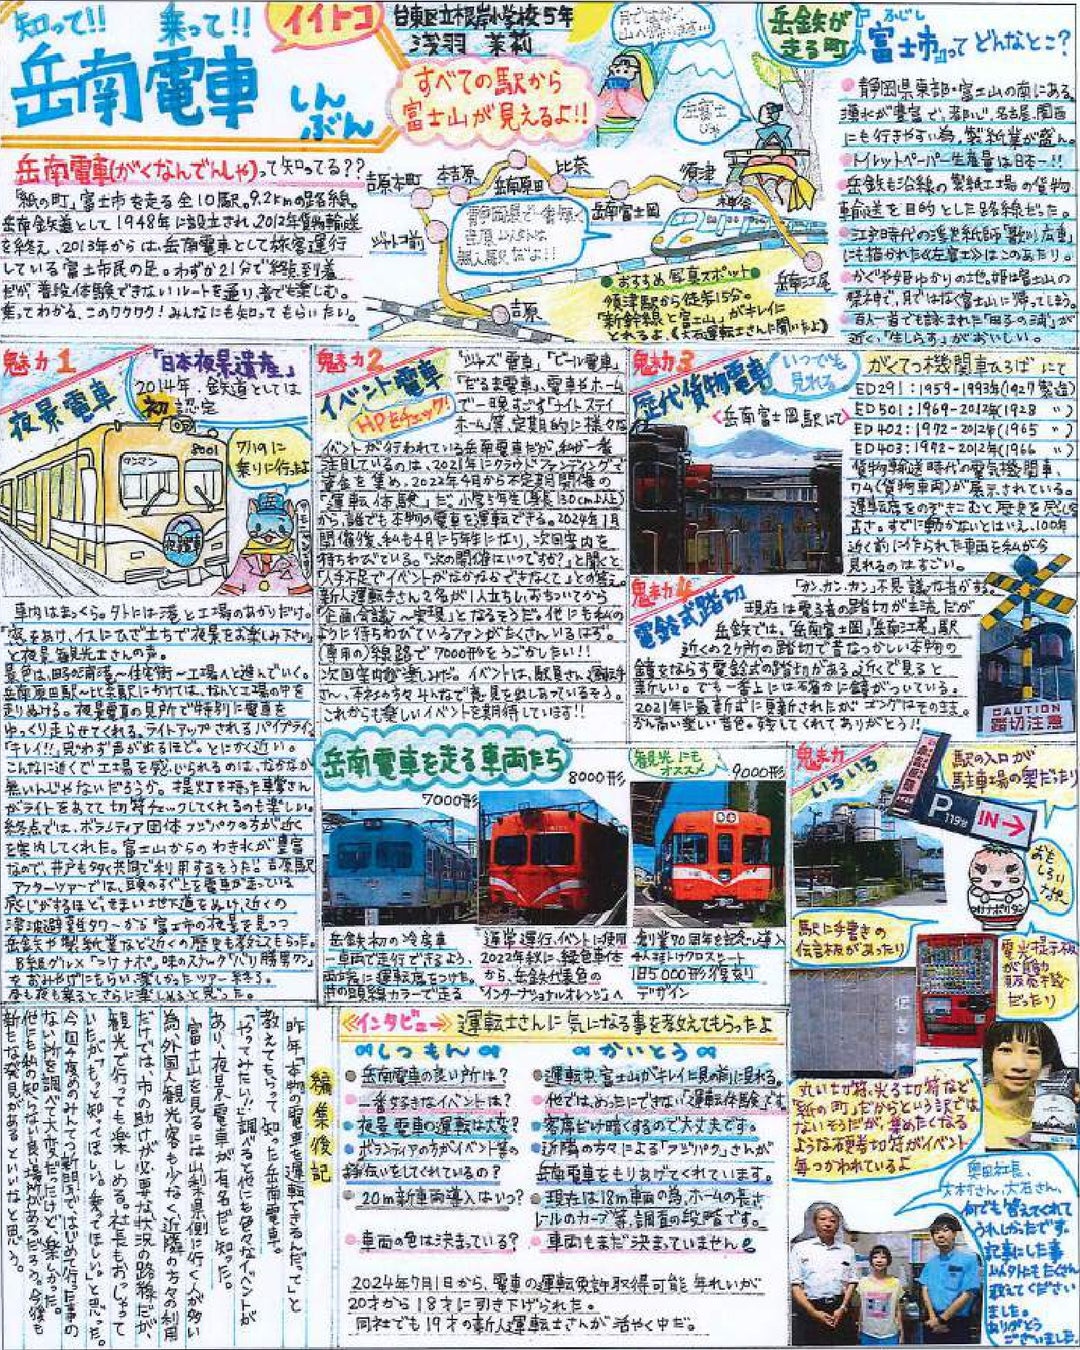 知って!! 乗って!!
イイトコ
岳南電車
しんぶん
台東区立根岸小学校5年
浅羽 茉莉
すべての駅から
富士山が見えるよ!!
岳鉄が
走る町
『富士市』ってどんなとこ?
ふじし
静岡県東部・富士山の南にある。
湧水が豊富で、都心、名古屋、関西
にも行きやすい為、製紙業が盛ん。
トイレットペーパー生産量は日本一!!
岳鉄も沿線の製紙工場の貨物
輸送を目的とした路線だった。
江戸時代の浮世絵師「歌川広重」
にも描かれた《左富士》はこのあたり。
かぐや姫ゆかりの地。姫は富士山の
祭神で、月ではなく富士山に帰ってしまう。
百人一首でも詠まれた「田子の浦」が
近く、「生しらす」がおいしい。
岳南電車(がくなんでんしゃ)って知ってる??
「紙の町」富士市を走る全10駅。9.2kmの路線。
岳南鉄道として1948年に設立され、2012年貨物輸送
を終え、2013年からは、岳南電車として旅客運行
している富士市民の足。わずか21分で終点到着
だが普段体験できないルートを通り、音でも楽しむ。
乗ってわかる、このワクワク!みんなにも知ってもらいたい。
吉原本町
本吉原
岳南原田
比奈
須津
神谷
ジヤトコ前
岳南富士岡
岳南江尾
吉原
おすすめ写真スポット
須津駅から徒歩15分。
「新幹線と富士山」がキレイに
とれるよ。(大石運転士さんに聞いたよ)
魅力1
夜景電車
「日本夜景遺産」
2014年、鉄道としては
初認定
ワンマン
8001
夜景電車
7/19に
乗りに行ったよ
車内はまっくら。外には港と工場のあかりだけ。
「窓をあけ、イスにひざ立ちで夜景をお楽しみ下さい」
と夜景観光士さんの声。
景色は、田子の浦港〜住宅街〜工場へと進んでいく。
岳南原田駅〜比奈駅にかけては、なんと工場の中を
走りぬける。夜景電車の見所で特別に電車を
ゆっくり走らせてくれる。ライトアップされるパイプライン。
「キレイ!!」思わず声が出るほど。とにかく近い。
こんなに近くで工場を感じられるのは、なかなか
無いんじゃないだろうか。提灯を持った車掌さん
がライトをあてて切符チェックしてくれるのも楽しい。
終点では、ボランティア団体フジパクの方が近く
を案内してくれた。富士山からのわき水が豊富
なので、井戸も多く共同で利用するそうだ!!吉原駅
アフターツアーでは、頭のすぐ上を電車が走っている
感じがするほど、せまい地下道をぬけ、近くの
津波避難タワーから富士市の夜景を見つつ
岳鉄や製紙業など近くの歴史も教えてもらった。
B級グルメ「つけナポ」味のスナック「バリ勝男クン」
をおみやげにもらい楽しかったツアー終了。
昼も夜も乗るとさらに楽しめると思った。
魅力2
イベント電車
HPをチェック!
「ジャズ電車」「ビール電車」
「だるま電車」、電車やホーム
で一晩すごす「ナイトステイ
ホーム」等、定期的に様々な
イベントが行われている岳南電車だが、私が一番
注目しているのは、2021年にクラウドファンディングで
資金を集め、2022年4月から不定期開催の
「運転体験」だ。小学5年生(身長130cm以上)
から、誰でも本物の電車を運転できる。2024年1月
開催後、私も4月に5年生になり、次回案内を
待ちわびている。「次の開催はいつですか?」と聞くと
「人手不足でイベントがなかなかできなくて」との答え。
新人運転手さん2名が1人立ちし、おちついてから
「企画会議〜実現」となるそうだ。他にも私の
ように待ちわびているファンがたくさんいるはず。
(専用の)線路で7000形をうごかしたい!!
次回案内が楽しみだ。イベントは、駅員さん、運転手
さん、本社の方々みんなで意見を出しあっているそう。
これからも楽しいイベントを期待しています!!
魅力3
歴代貨物電車
いつでも
見れる
《岳南富士岡駅にて》
がくてつ機関車ひろばにて
ED291:1959-1993年(1927製造)
ED501:1969-2012年(1928 〃)
ED402:1972-2012年(1965 〃)
ED403:1972-2012年(1966 〃)
貨物輸送時代の電気機関車、
ワム(貨物車両)が展示されている。
運転席をのぞきこむと歴史を感じる
古さ。すでに動かないとはいえ、100年
近く前に作られた車両を私が今
見れるのはすごい。
魅力4
電鈴式踏切
「カン、カン、カン」不思議な音がする。
現在は電子音の踏切が主流だが
岳鉄では、「岳南富士岡」「岳南江尾」駅
近くの2ヶ所の踏切で昔なつかしい本物の
鐘をならす電鈴式の踏切がある。近くで見ると
新しい。でも一番上には確かに鐘がついている。
2021年に最新式に更新されたが、ゴングはそのまま。
かん高い楽しい音色。残してくれてありがとう!!
CAUTION
踏切注意
岳南電車を走る車両たち
7000形
8000形
観光にも
オススメ
9000形
岳鉄初の冷房車
一車両で走行できるよう、
両端に運転席をつけた。
井の頭線カラーで走る
通常運行、イベントに使用
2022年秋に、緑色車体
から、岳鉄代表色の
「インターナショナルオレンジ」へ
創業70周年を記念し導入
4人掛けクロスシート
旧5000形復刻
デザイン
魅力
いろいろ
駅の入口が
駐車場の奥だったり
P
119台
IN→
おも
しろい
ナゼ
駅に手書きの
伝言板があったり
伝言板
電光掲示板
が自動
販売機
だったり
丸い切符、光る切符など
「紙の町」だからという訳では
ないそうだが、集めたくなる
ような硬券切符がイベント
毎つかわれているよ
奥田社長、
大村さん、大石さん、
何でも答えてくれて
うれしかったです。
記事にした事
以外にもたくさん
教えてください
ました。
ありがとう
ございました。
《インタビュー》運転士さんに気になる事を教えてもらったよ
しつもん
かいとう
岳南電車の良い所は?
運転中、富士山がキレイに目の前に見れる。
一番好きなイベントは?
他では、めったにできない「運転体験」です
夜景電車の運転は大変?
客席だけ暗くするので大丈夫です。
ボランティアの方がイベント等の
手伝いをしてくれているの?
近隣の方々による「フジパク」さんが
岳南電車をもりあげてくれています。
20m新車両導入はいつ?
現在は18m車両の為、ホームの長さ
レールのカーブ等、調査の段階です。
車両の色は決まっている?
車両もまだ決まっていません
2024年7月1日から、電車の運転免許取得可能年れいが
20才から18才に引き下げられた。
同社でも19才の新人運転士さんが活やく中だ。
編集後記
昨年「本物の電車を運転できるんだって」と
教えてもらって知った岳南電車。
「やってみたい」と調べると他にも色々なイベントが
あり、夜景電車が有名だと知った。
富士山を見るには山梨県側に行く人が多い
為、外国人観光客も少なく近隣の方々の利用
だけでは、市の助けが必要な状況の路線だが、
観光で行っても楽しめる。社長もおっしゃって
いたが「もっと知ってほしい。乗ってほしい。」と思った。
今回4度めのみんてつ新聞ではじめて行った事の
ない所を調べて大変だったけど楽しかった。
他にも私の知らない良い場所があるだろう。今後も
新たな発見があるといいなと思う。